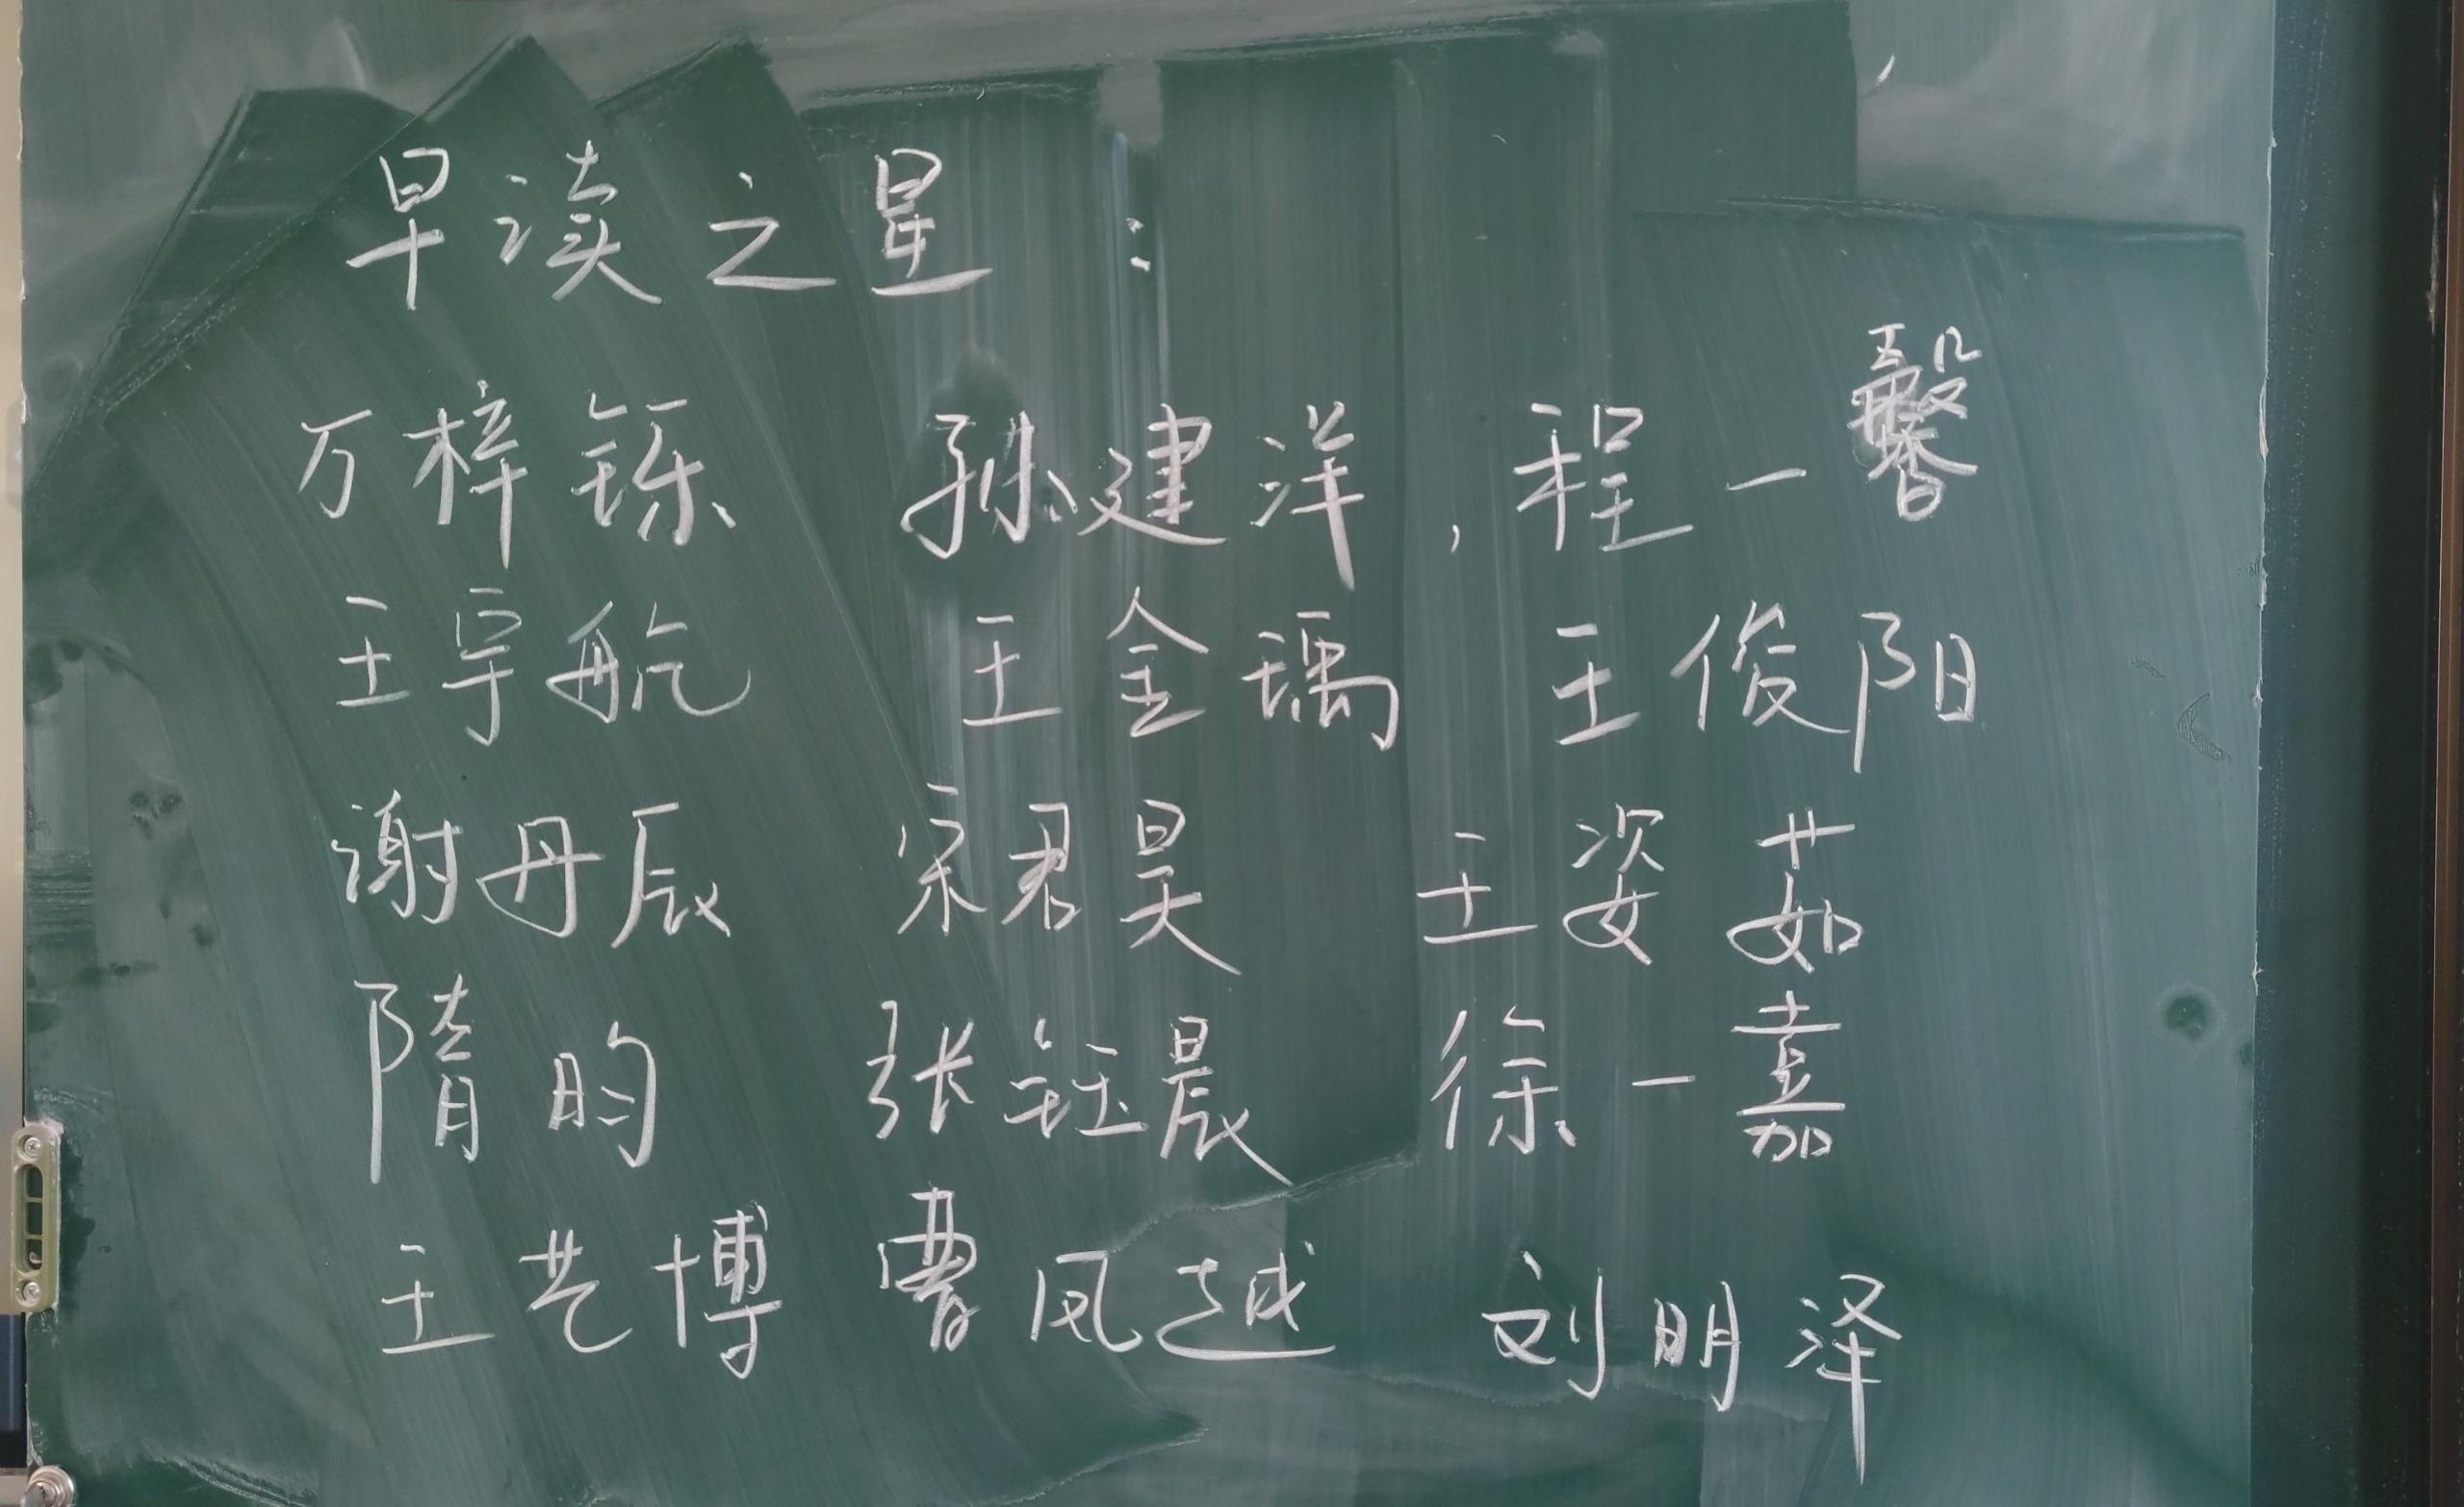 早读之星:
万梓铄 孙建洋，程一馨
王宇航 王金瑀 王俊阳
谢丹辰 宋君昊 王姿茹
隋昀 张钰晨 徐一嘉
王艺博 曹风越 刘明泽